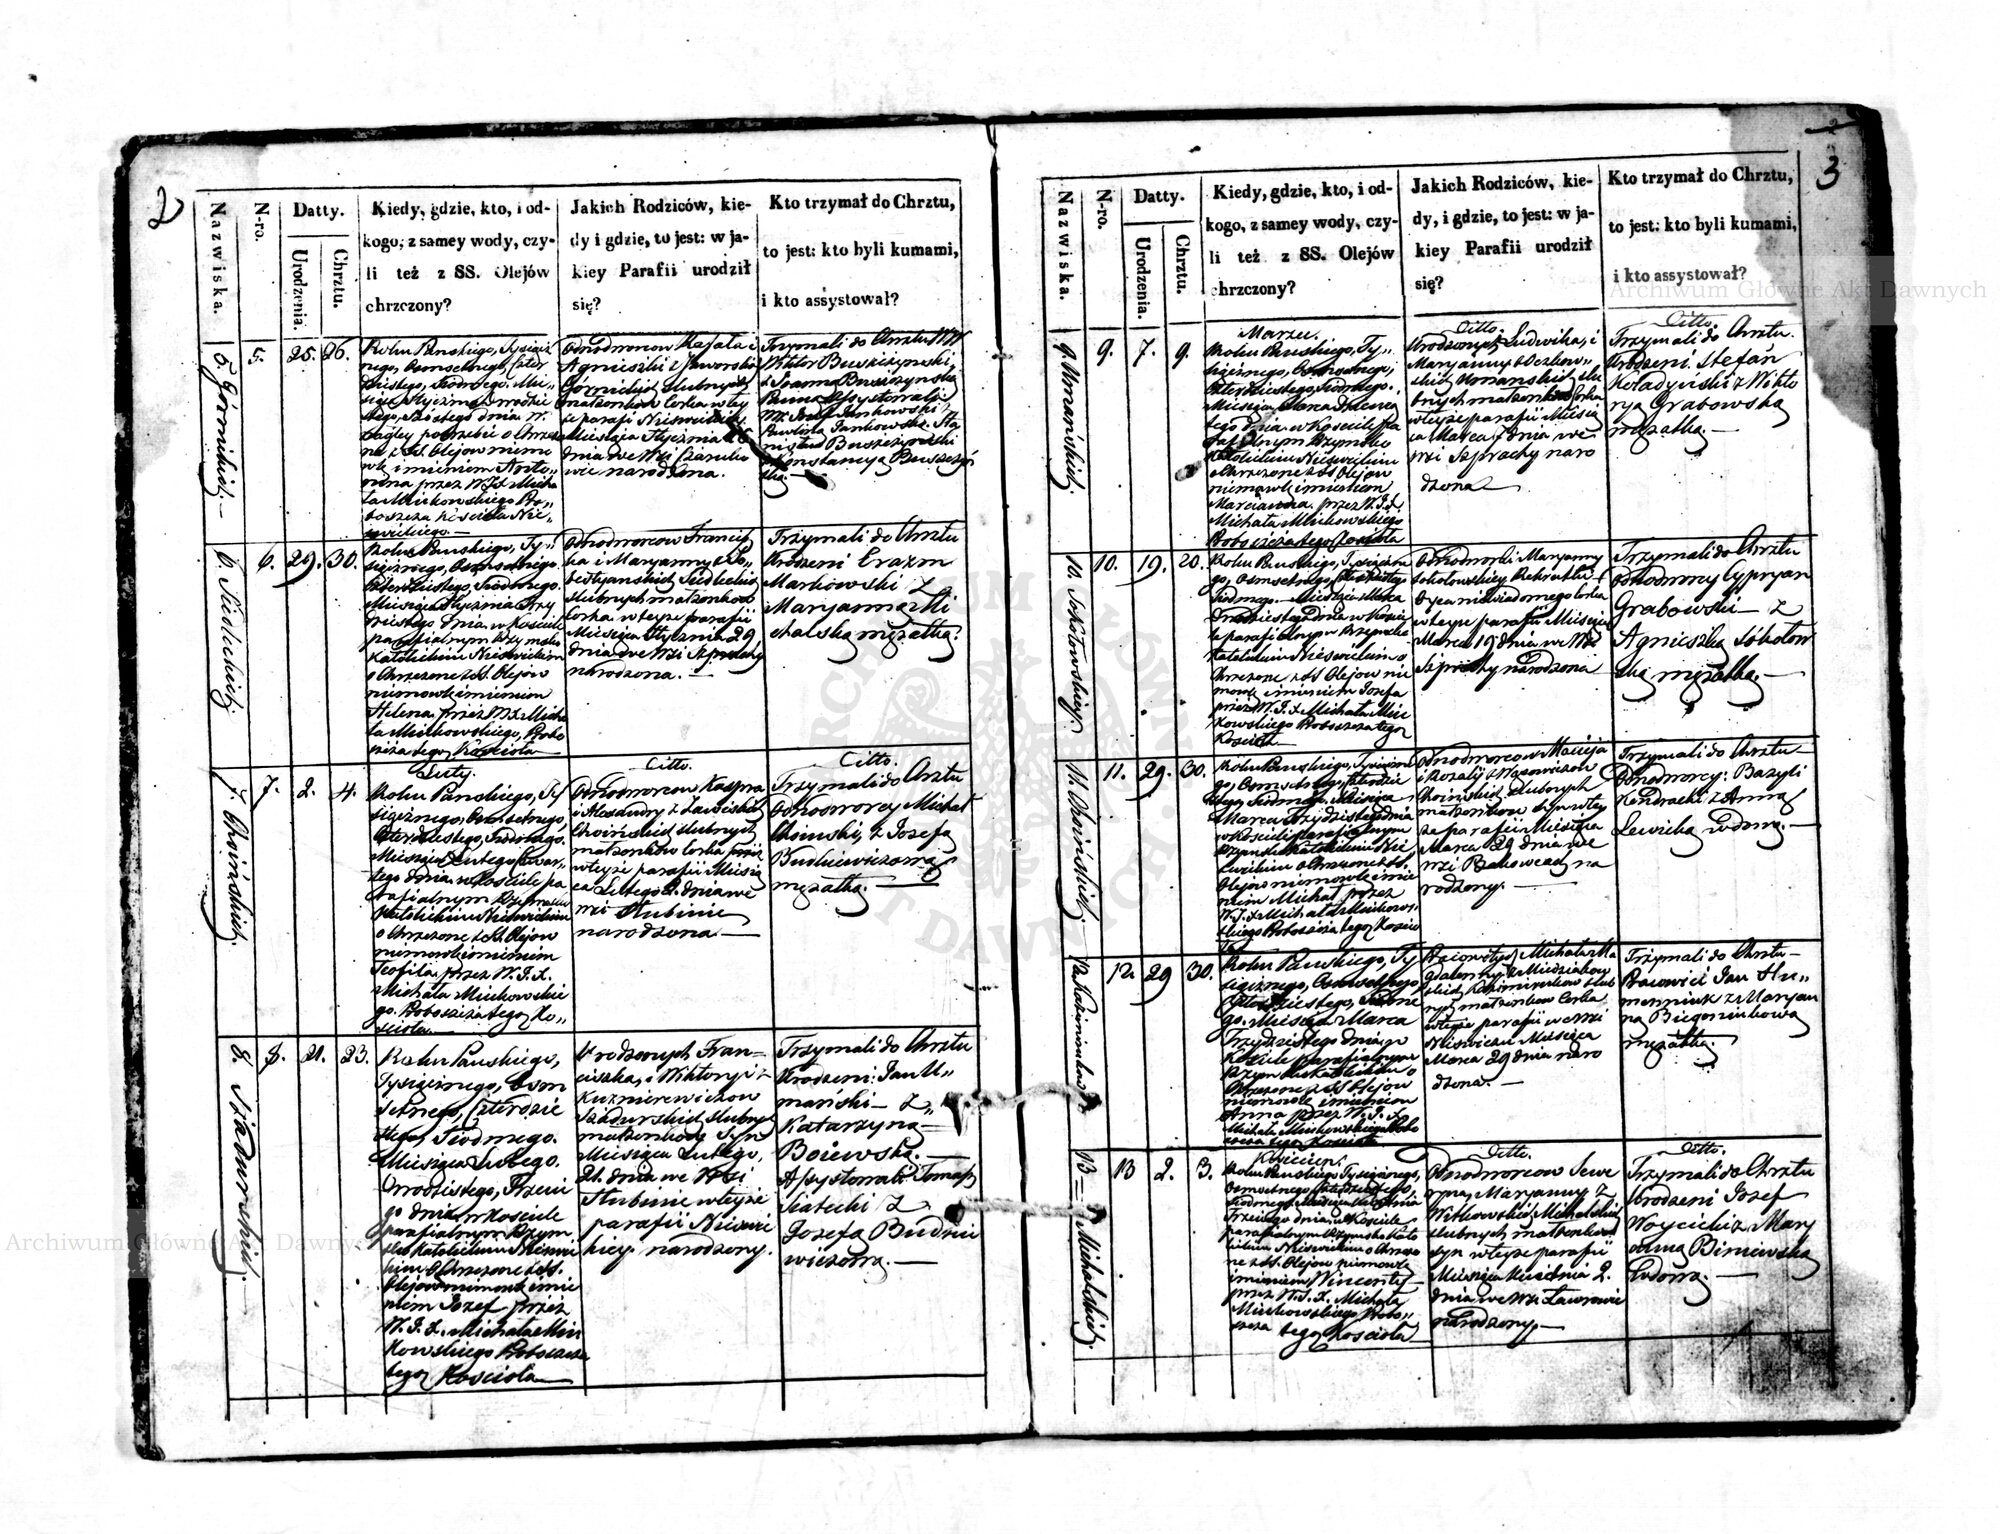 2
Nazwiska.
N-ro.
Datty.
Urodzenia.
Chrztu.
Kiedy, gdzie, kto, i od-
kogo, z samey wody, czy-
li też z SS. Olejów
chrzczony?
Jakich Rodziców, kie-
dy i gdzie, to jest: w ja-
kiey Parafii urodził
się?
Kto trzymał do Chrztu,
to jest: kto byli kumami,
i kto assystował?
5. Górnickich.
5.
25.
26.
Roku Panskiego, Tysiącz
nego, Osmsetnego, Czter
dziestego, Siodmego, Mie
siąca Stycznia
na z SS. Olejow niemo
wle imieniem Anto
nina przez W. J. X. Micha
ła Minkowskiego Pro
boszcza Kościoła Nie
swickiego.
Odnodworcow Rafała i
Agnieszki z Jaworskich
Górnickich slubnych
małżonkow Corka w tey
że parafi Nieswickiey
Miesiąca Stycznia 25
dnia we Wsi
narodzona.
Trzymali do Chrztu WW
Wiktor Buszczynski
z Joanną Buszczynską
Panną Assystowali
Jankowski
Pawliną Jankowską. Sta
nisław Buszczynski
z Konstancyą Buszczyn
ską.
6. Siedleckich.
6.
29.
30.
Roku Panskiego, Ty
siącznego, Osmsetnego
Czterdziestego, Siodmego.
Miesiąca Stycznia Trzy
dziestego Dnia w Kościele
parafialnym Rzymsko
Katolickim Nieswickim
Ochrzczone z SS. Olejow
niemowle imieniem
Helena przez W. J. X. Micha
ła Minkowskiego, Probo
szcza tegoż Kościoła
Odnodworcow Francisz
ka i Maryanny z Se
bestyanskich Siedleckich
slubnych małżonkow
Corka w teyże parafii
Miesiąca Stycznia 29
dnia we Wsi Szprachy
narodzona.
Trzymali do Chrztu
Urodzeni Erazm
Markowski z
Maryanną Mi
chalską mężatką.
7. Choińskich.
7.
2.
4.
Luty.
Roku Panskiego, Ty
siącznego, Osmsetnego,
Czterdziestego, Siodmego.
Miesiąca Lutego Czwar
tego dnia w Kościele pa
rafialnym Rzymsko
Katolickim Nieswickim
Ochrzczone z SS. Olejow
niemowle imieniem
Teofila przez W. J. X.
Michała Minkowskie
go Proboszcza tegoż Ko
ścioła.
Ditto.
Odnodworcow Kaspra
i Alexandry z Zawiskich
Choińskich slubnych
małżonkow Corka
w teyże parafii Miesią
ca Lutego 2. dnia we
wsi Stubinie
narodzona.
Ditto.
Trzymali do Chrztu
Odnodworcy Michał
Choinski, z Jozefą
Budkiewiczową
mężatką.
8. Siadurskich.
8.
21.
23.
Roku Panskiego,
Tysiącznego, Osm
setnego, Czterdzie
stego, Siodmego.
Miesiąca Lutego.
Dwodziestego, Trzeci
go dnia w Kościele
parafialnym Rzym
sko Katolickim Nieswic
kim Ochrzczone z SS.
Olejow niemowle imie
niem Jozef przez
W. J. X. Michała Min
kowskiego Proboszcza
tegoż Kościoła
Urodzonych Fran
ciszka, i Wiktoryi z
Kuzmierewiczow
Siadurskich slubnych
małżonkow Syn
Miesiąca Lutego,
21. dnia we Wsi
Stubinie w teyże
parafii Nieswic
kiey narodzony.
Trzymali do Chrztu
Urodzeni: Jan U
mański z
Katarzyną
Bojewską.
Assystowali Tomasz
Siatecki z
Jozefą Budkie
wiczową.
3
Nazwiska.
N-ro.
Datty.
Urodzenia.
Chrztu.
Kiedy, gdzie, kto, i od-
kogo, z samey wody, czy-
li też z SS. Olejów
chrzczony?
Jakich Rodziców, kie-
dy, i gdzie, to jest: w ja-
kiey Parafii urodził
się?
Kto trzymał do Chrztu,
to jest: kto byli kumami,
i kto assystował?
9. Umańskich.
9.
7.
9.
Marzec.
Roku Panskiego, Ty
siącznego, Osmsetnego,
Czterdziestego, Siodmego.
Miesiąca Marca Dziewią
tego dnia w Kościele pa
rafialnym Rzymsko
Katolickim Nieswickim
Ochrzczone z SS Olejow
niemowle imieniem
Marcianna przez W. J. X.
Michała Minkowskiego
Proboszcza tegoż Kościoła
Ditto.
Urodzonych Ludwika, i
Maryanny
Umanskich slu
bnych małżonkow Corka
w teyże parafii Miesią
ca Marca 7 dnia we
wsi Szprachy naro
dzona
Ditto.
Trzymali do Chrztu.
Urodzeni Stefan
Koładyński z Wikto
ryą Grabowską
mężatką.
10. Sokołowskiey.
10.
19.
20.
Roku Panskiego, Tysiączne
go, Osmsetnego, Czterdziestego
Siodmego. Miesiąca Marca
Dwudziestego Dnia w Koście
le parafialnym Rzymsko
Katolickim Nieswickim o
chrzczone z SS Olejow nie
mowle imieniem Jozefa
przez W. J. X. Michała Min
kowskiego Proboszcza tegoż
Kościoła
Odnodworki Maryanny
Sokołowskiey
Oyca niewiadomego Corka
w teyże parafii Miesiąca
Marca 19 dnia we Wsi
Szprachy narodzona
Trzymali do Chrztu
Odnodworcy Cypryan
Grabowski z
Agnieszką Sokołow
ską mężatką.
11. Choińskich.
11.
29.
30.
Roku Panskiego, Tysiączne
go, Osmsetnego, Czterdzie
stego, Siodmego. Miesiąca
Marca Trzydziestego dnia
w Kościele parafialnym
Rzymsko Katolickim Nie
swickim Ochrzczone z SS.
Olejow niemowle imie
niem Michał przez
W. J. X. Michała Minkows
kiego Proboszcza tegoż Kościo
ła
Odnodworcow Macieja
i Rozalii z Wąsowiczow
Choińskich slubnych
małżonkow Syn w tey
że parafii Miesiąca
Marca 29 dnia we
wsi na
rodzony.
Trzymali do Chrztu
Odnodworcy: Bazyli
Kondracki z Anną
Lewicką wdową.
12. Kazimirukow
12.
29
30.
Roku Panskiego, Ty
siącznego, Osmsetnego
Czterdziestego, Siodme
go. Miesiąca Marca
Trzydziestego dnia w
Kościele parafialnym
Rzymsko Katolickim o
chrzczone z SS Olejow
niemowle imieniem
Anna przez W. J. X.
Michała Minkowskiego Probo
szcza tegoż Kościoła
Michała Ma
gdaleny z
Kazimirukow slub
nych małżonkow Corka
w teyże parafii w wsi
Nieswiczu Miesiąca
Marca 29 dnia naro
dzona.
Trzymali do Chrztu
Pracowici Jan Hu
menniuk z Maryan
ną Biegoniukową
mężatką.
13. Michalskich
13
2.
3.
Kwiecień.
Roku Panskiego, Tysiącznego,
Osmsetnego, Czterdziestego,
Siodmego, Miesiąca Kwietnia
Trzeciego dnia, w Kościele
parafialnym Rzymsko Kato
lickim Nieswickim Ochrzczo
ne z SS. Olejow niemowle
imieniem Wincenty
przez W. J. X. Michała
Minkowskiego Probo
szcza tegoż Kościoła
Ditto.
Odnodworcow Sewe
ryna, Maryanny z
Witkowskich Michalskich
slubnych małżonkow
Syn w teyże parafii
Miesiąca Kwietnia 2.
dnia we Wsi Ławrowie
narodzony.
Ditto.
Trzymali do Chrztu
Urodzeni Jozef
Woycicki z Mary
anną Biniewską
wdową.
Archiwum Główne Akt Dawnych
Archiwum Główne Akt Dawnych
ARCHIWUM GŁÓWNE AKT DAWNYCH